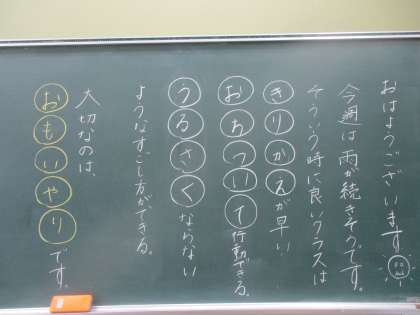 おはようございます
今週は雨が続きそうです。
そういう時に良いクラスは
きりかえが早い
おちついて行動できる。
うるさくならない
ようなすごし方ができる。
大切なのは、
おもいやりです。